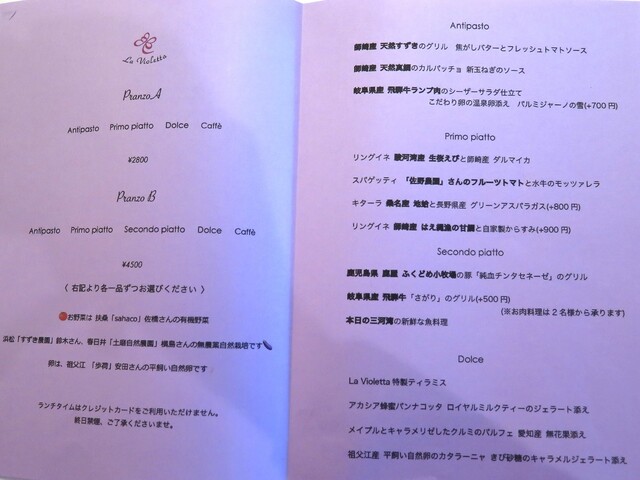 La Violetta
Pranzo A
Antipasto Primo piatto Dolce Caffé
¥2800
Pranzo B
Antipasto Primo piatto Secondo piatto Dolce Caffé
¥4500
〈 右記より各一品ずつお選びください 〉
お野菜は 扶桑「sahaco」佐橋さんの有機野菜
浜松「すずき農園」鈴木さん、春日井「土磨自然農園」横島さんの無農薬自然栽培です
卵は、祖父江 「歩荷」安田さんの平飼い自然卵です
ランチタイムはクレジットカードをご利用いただけません。
終日禁煙、ご了承くださいませ。
Antipasto
師崎産 天然すずきのグリル 焦がしバターとフレッシュトマトソース
師崎産 天然真鯛のカルパッチョ 新玉ねぎのソース
岐阜県産 飛騨牛ランプ肉のシーザーサラダ仕立て
こだわり卵の温泉卵添え パルミジャーノの雪(+700 円)
Primo piatto
リングイネ 駿河湾産 生桜えびと師崎産 ダルマイカ
スパゲッティ 「佐野農園」さんのフルーツトマトと水牛のモッツァレラ
キターラ 桑名産 地蛤と長野県産 グリーンアスパラガス(+800 円)
リングイネ 師崎産 はえ縄漁の甘鯛と自家製からすみ(+900 円)
Secondo piatto
鹿児島県 鹿屋 ふくどめ小牧場の豚「純血チンタセネーゼ」のグリル
岐阜県産 飛騨牛「さがり」のグリル(+500 円)
(※お肉料理は 2 名様から承ります)
本日の三河湾の新鮮な魚料理
Dolce
La Violetta 特製ティラミス
アカシア蜂蜜パンナコッタ ロイヤルミルクティーのジェラート添え
メイプルとキャラメリゼしたクルミのパルフェ 愛知産 無花果添え
祖父江産 平飼い自然卵のカタラーニャ きび砂糖のキャラメルジェラート添え